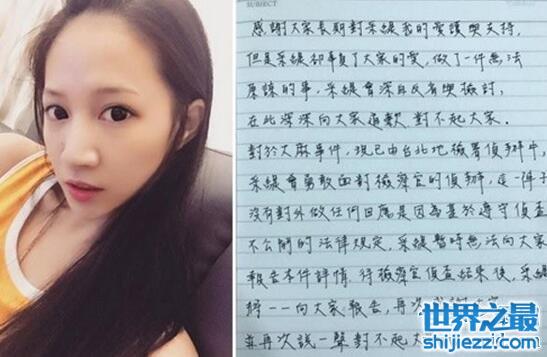 SUBJECT
感謝大家長期對采緹我的愛護與支持,
但是采緹卻辜負了大家的愛,做了一件無法
原諒的事,采緹會深自反省與檢討,
在此深深向大家道歉,對不起大家。
對於大麻事件,現已由台北地檢署偵辦中,
采緹會勇敢面對檢察官的偵辦,這一陣子
沒有對外做任何回應是因為基於遵守偵查
不公開的法律規定,采緹暫時無法向大家
報告本件詳情,待檢察官偵查結束後,采緹
將一一向大家報告,再次
並再次說一聲對不起大
世界之最
shijiezz.com